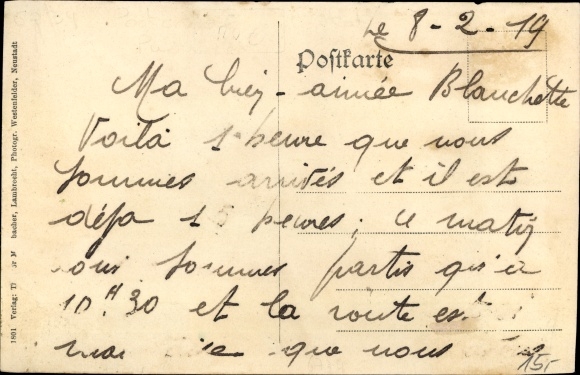 Le 8-2-19
Postkarte
Ma bien-aimée Blanchette
Voilà 1 heure que nous
sommes arrivés et il est
déja 15 heures; ce matin
nous sommes partis qu'a
10H30 et la route est
que nous
15.-
1801 Verlag: bacher, Lambrecht, Photogr. Westenfelder, Neustadt